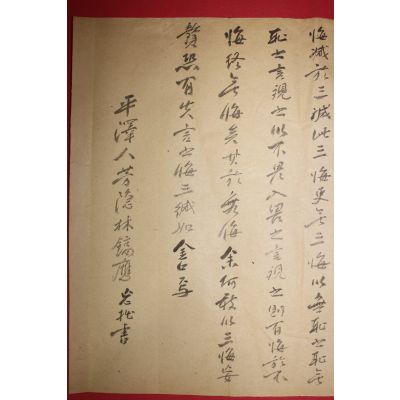 悔減於三緘此三悔更無三悔以無恥之恥無
恥之言視之以不畏入畏之言視之則有悔於不
悔終無悔矣其於無悔余何敢以三悔安
贅恐有失言之悔三緘如金口字
平澤人芳隐林鎬應 書